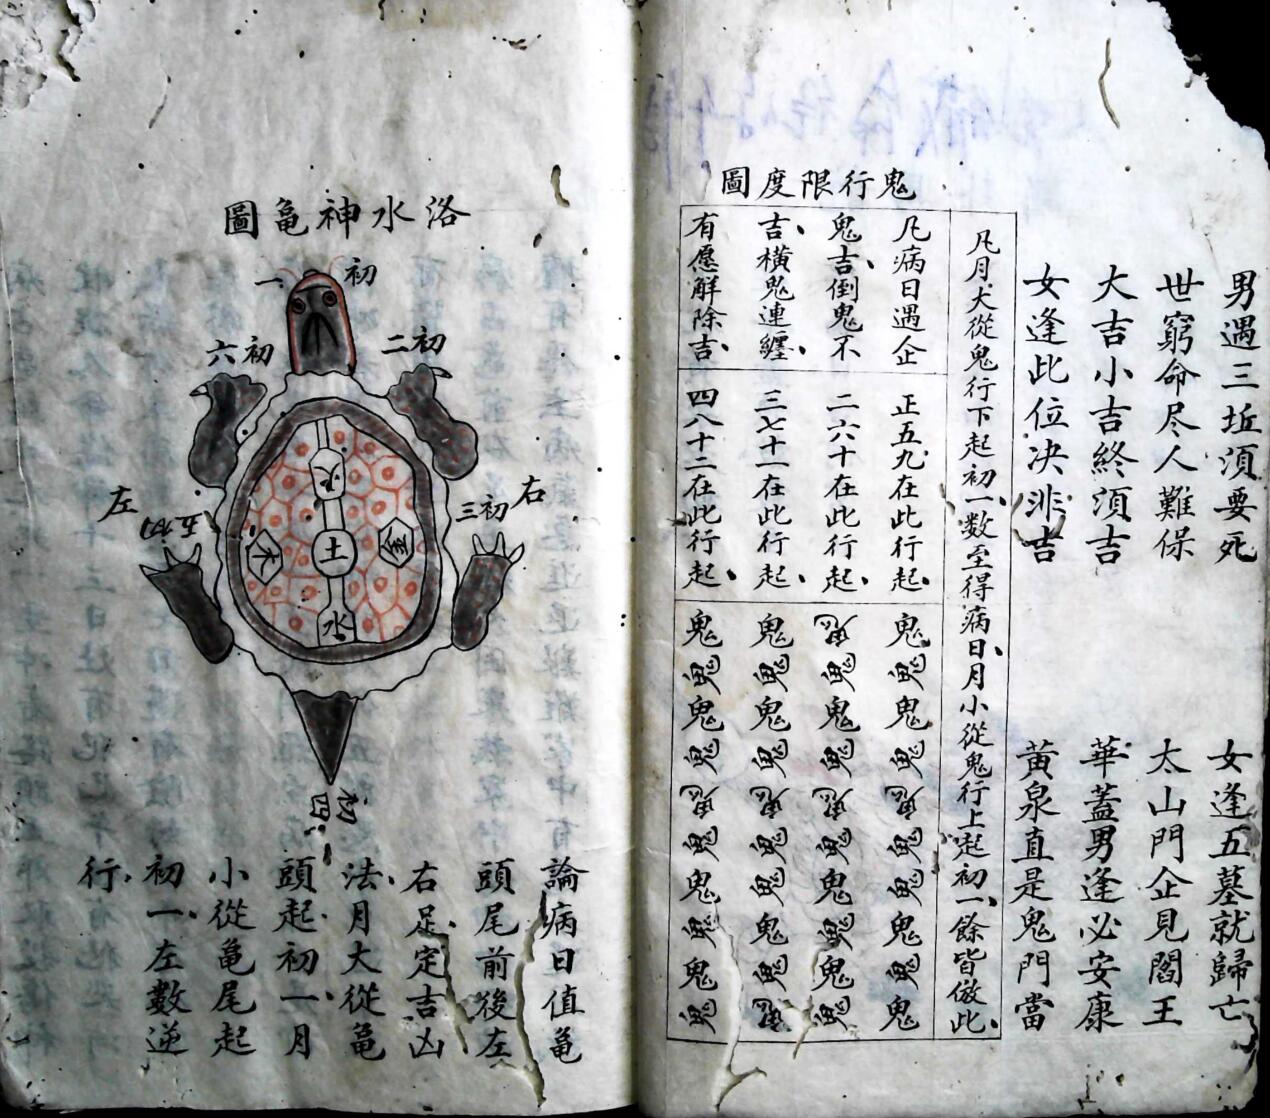 男遇三坵須要死
女逢五墓就歸亡
世窮命尽人難保
太山門企見閻王
大吉小吉終須吉
華蓋男逢必安康
女逢此位决非吉
黃泉直是鬼門當
鬼行限度圖
凡月大從鬼行下起初一数至得病日月小從鬼行上起初一餘皆倣此
凡病日遇企
鬼吉倒鬼不
吉橫鬼連纏
有愿解除吉
正五九在此行起
二六十在此行起
三七十一在此行起
四八十二在此行起
鬼鬼鬼鬼鬼鬼鬼鬼鬼鬼
鬼鬼鬼鬼鬼鬼鬼鬼鬼鬼
鬼鬼鬼鬼鬼鬼鬼鬼鬼鬼
鬼鬼鬼鬼鬼鬼鬼鬼鬼鬼
洛水神亀圖
初一
初二
初六
右
初三
左
初五
火
土
金
木
水
初四
論病日值亀
頭尾前後左
右足定吉凶
法月大從亀
頭起初一月
小從亀尾起
初一左數逆
行